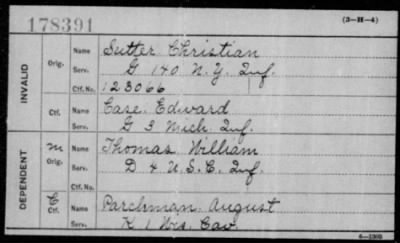 178391
(3-H-4)
INVALID
Orig.
Name Sutter Christian
Serv. G 140 N.Y. Inf.
Ctf. No. 123066
Ctf.
Name Case Edward
Serv. G 3 Mich. Inf.
DEPENDENT
m
Orig.
Name Thomas William
Serv. D 4 U.S.C. Inf.
Ctf. No.
C
Ctf.
Name Parchman August
Serv. K 1 Wis. Cav.